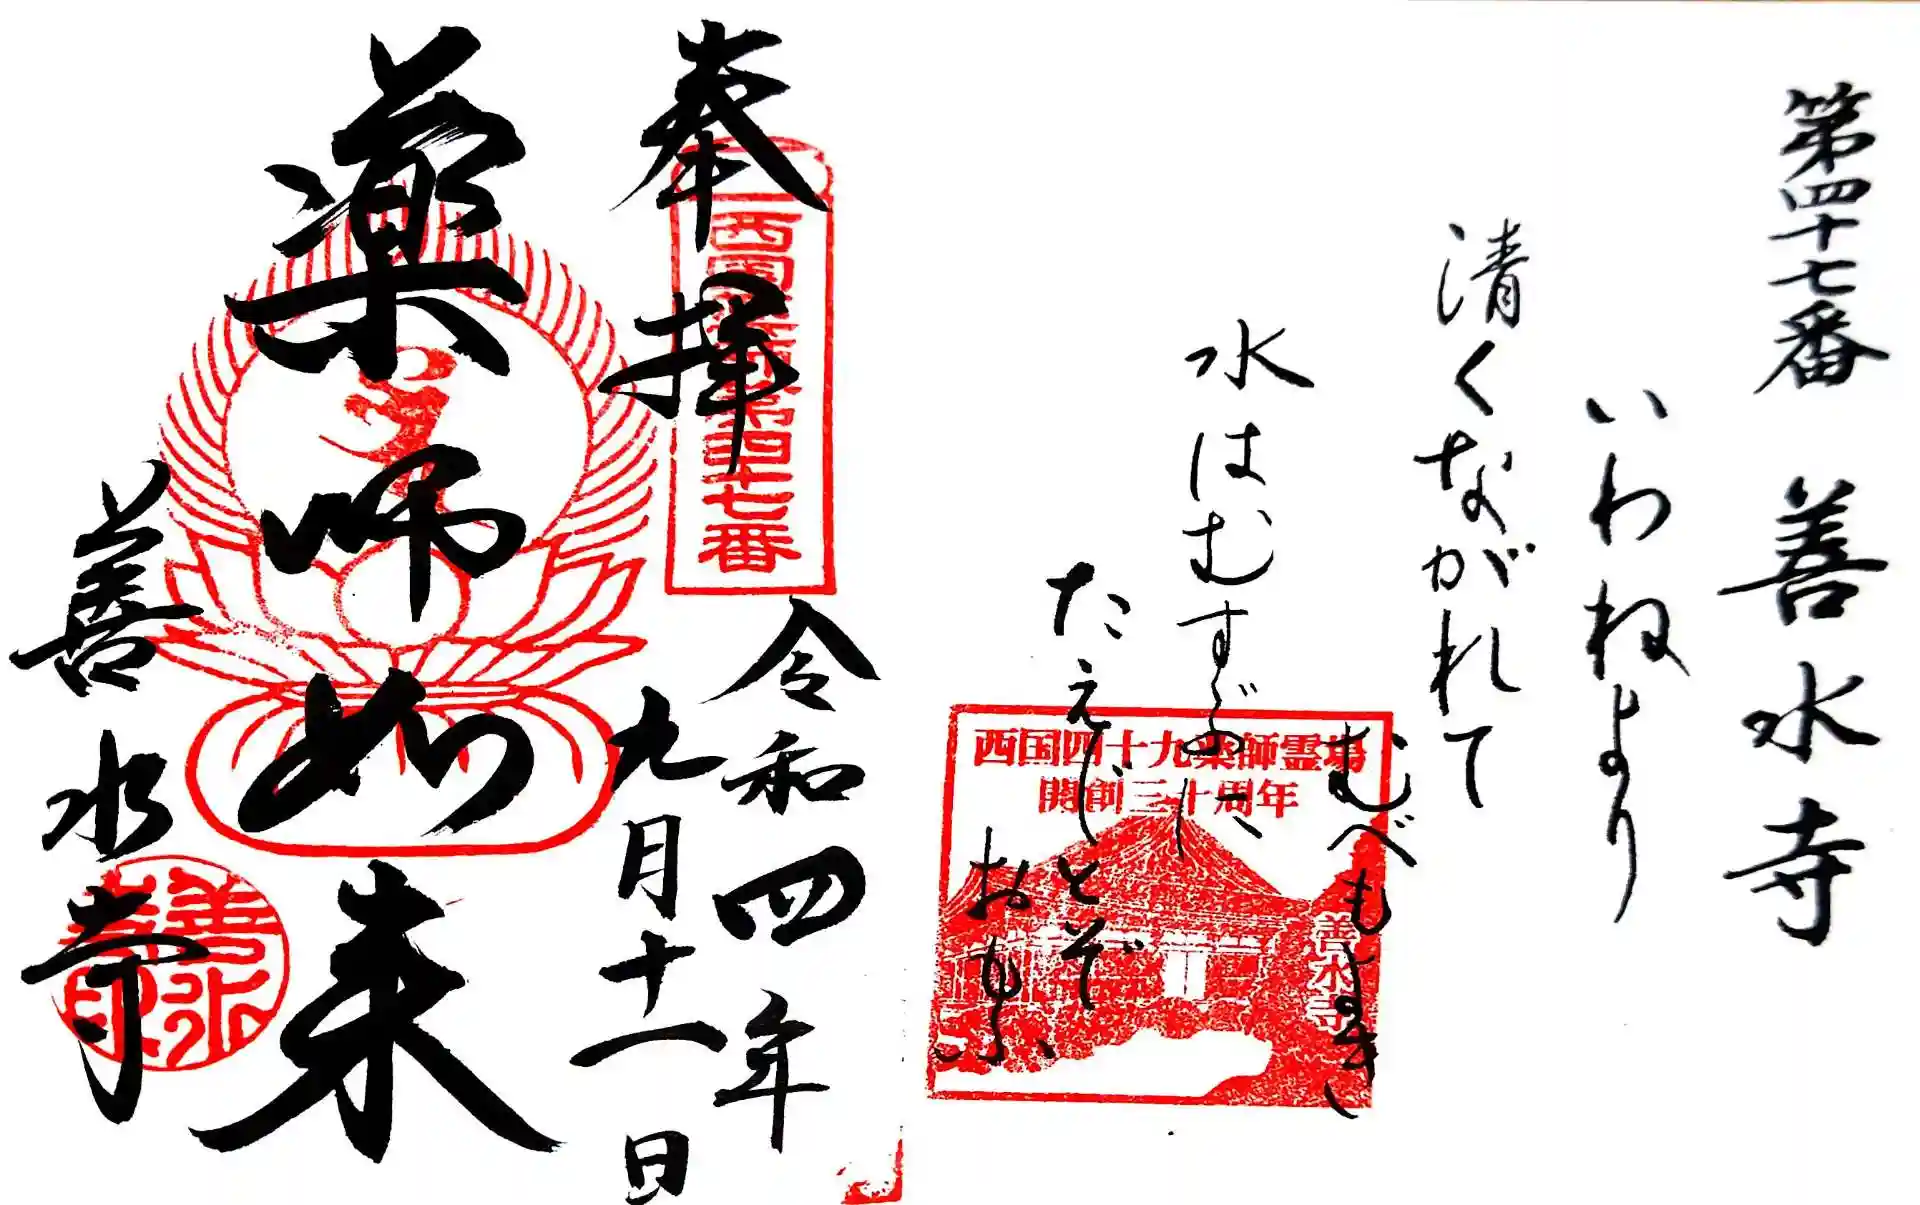 第四十七番 善水寺
いわねより
清くながれて
むべもよき
水はむすぶに
たえじとぞ
おもふ
西国四十九薬師霊場
開創三十周年
善水寺
奉拝
西國薬師第四十七番
令和四年
九月十一日
薬師如来
善水寺
善水寺印